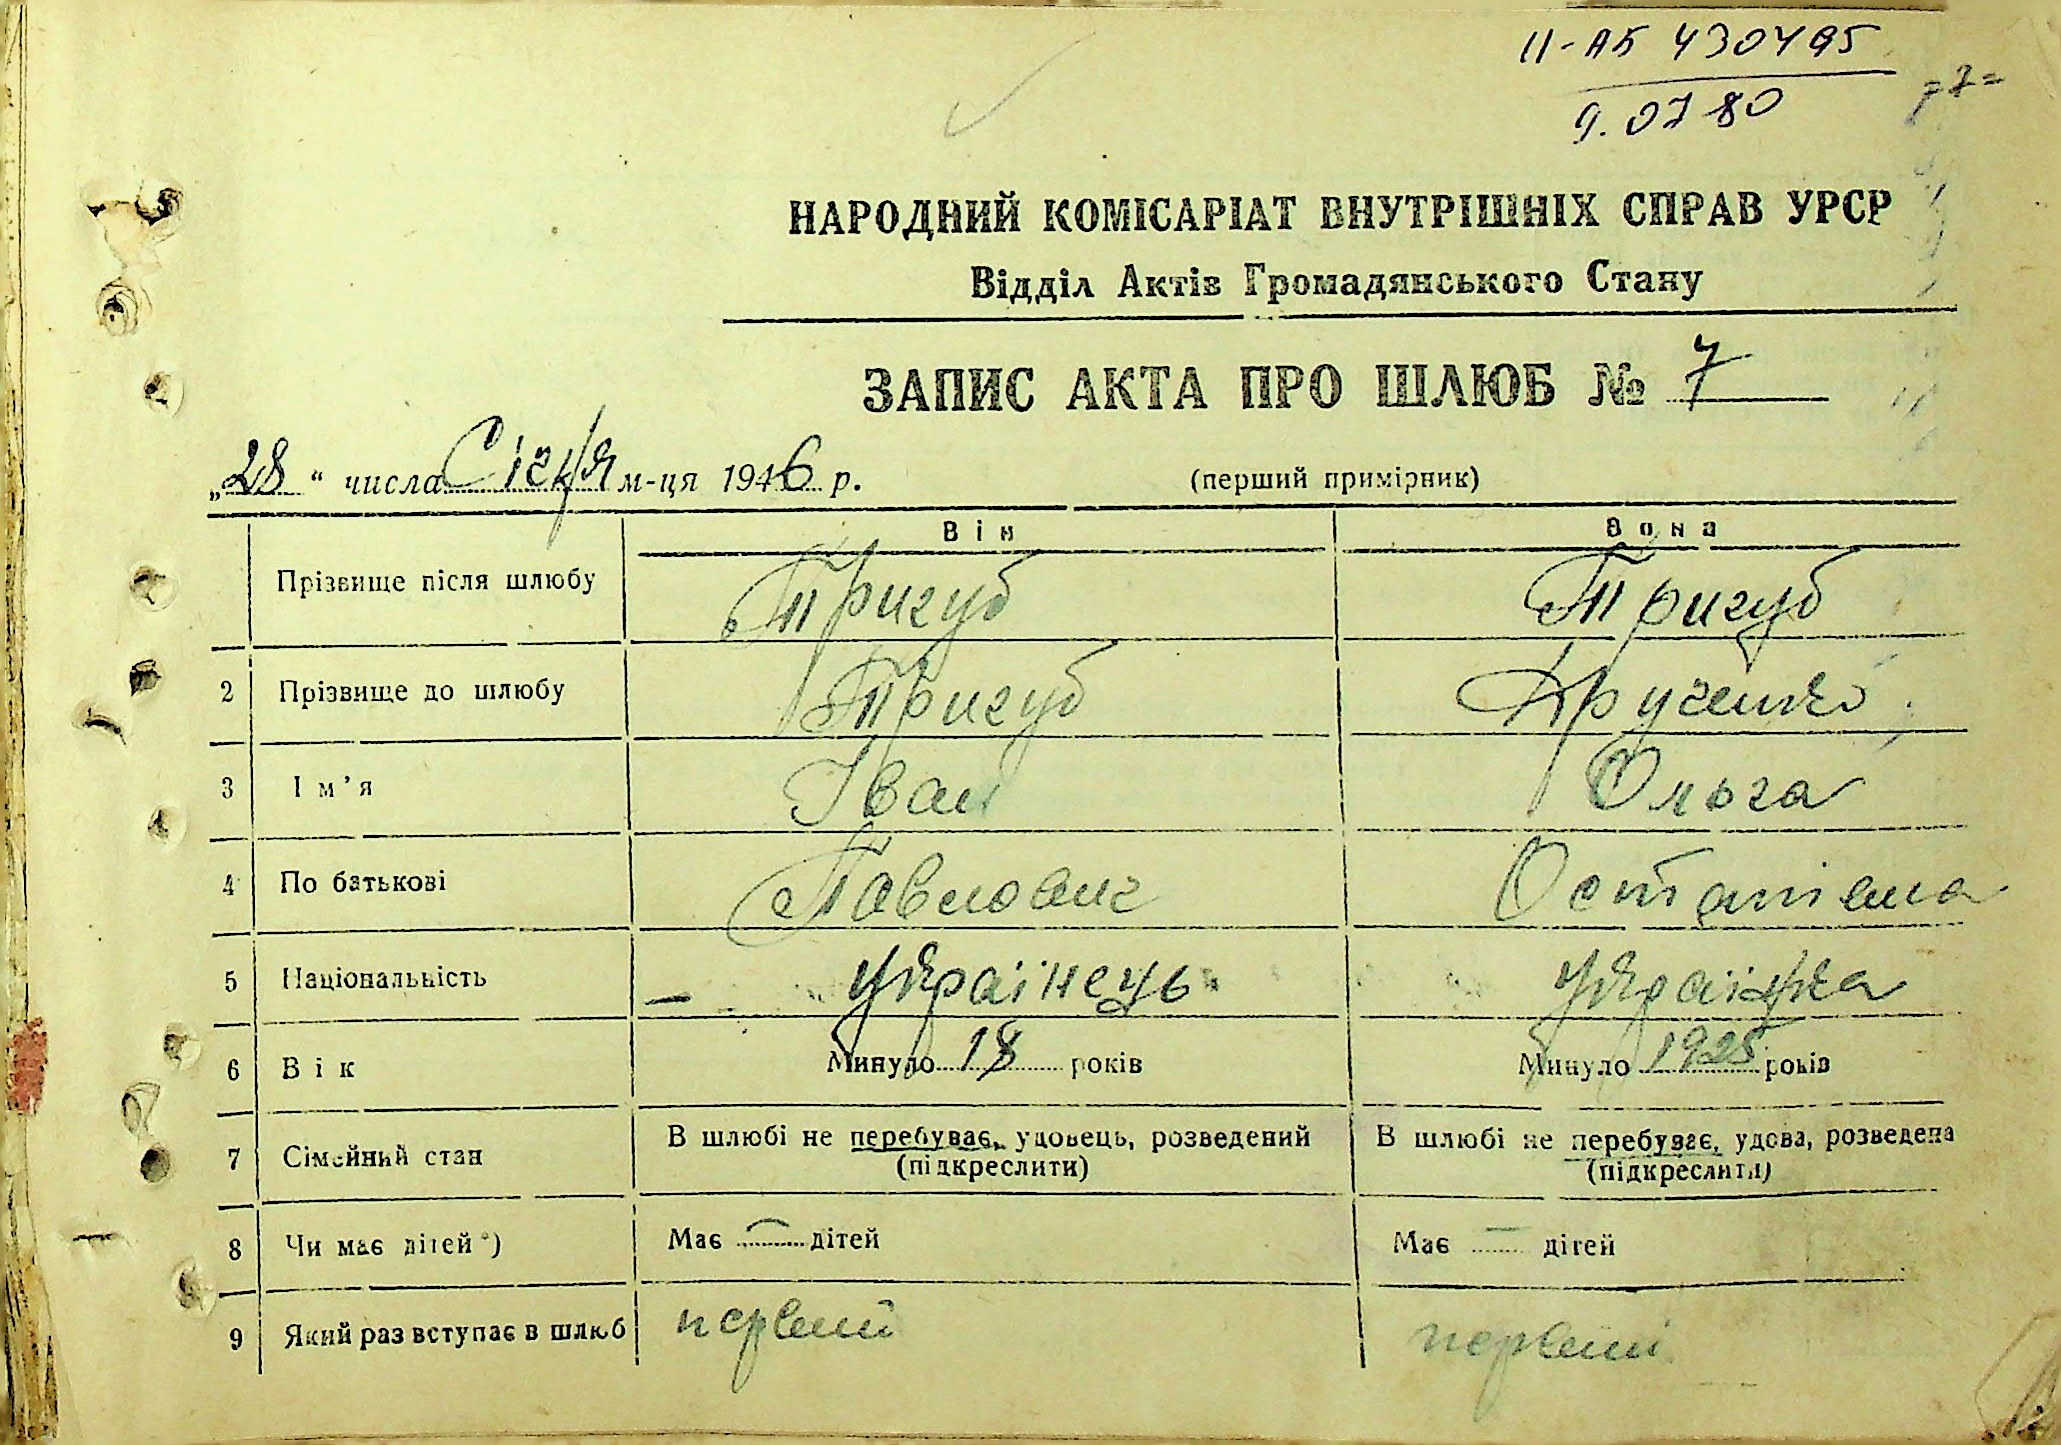 II-АБ 430495
9.07 80
=7=
НАРОДНИЙ КОМІСАРІАТ ВНУТРІШНІХ СПРАВ УРСР
Відділ Актів Громадянського Стану
ЗАПИС АКТА ПРО ШЛЮБ № 7
„28“ числа Січня м-ця 1946 р. (перший примірник)
Він Вона
Прізвище після шлюбу Тригуб Тригуб
2 Прізвище до шлюбу Тригуб
3 Ім’я Іван Ольга
4 По батькові Павлович Остапівна
5 Національність — Українець Українка
6 Вік Минуло 18 років Минуло 1925 років
7 Сімейний стан В шлюбі не перебуває, удовець, розведений (підкреслити) В шлюбі не перебуває, удова, розведена (підкреслити)
8 Чи має дітей*) Має — дітей Має — дітей
9 Який раз вступає в шлюб первий первий